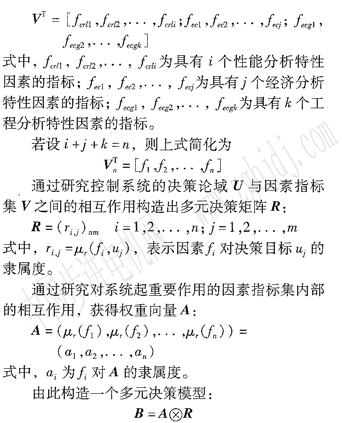 Vᵀ = [f_crl1, f_crl2, ..., f_crli; f_ec1, f_ec2, ..., f_ecj; f_ecg1,
f_ecg2, ..., f_ecgk]
式中, f_crl1, f_crl2, ..., f_crli为具有 i 个性能分析特性
因素的指标; f_ec1, f_ec2, ..., f_ecj为具有 j 个经济分析
特性因素的指标; f_ecg1, f_ecg2, ..., f_ecgk为具有 k 个工
程分析特性因素的指标。
若设 i+j+k=n, 则上式简化为
V_nᵀ = [f₁, f₂, ..., f_n]
通过研究控制系统的决策论域 U 与因素指标
集 V 之间的相互作用构造出多元决策矩阵 R:
R = (r_{i,j})_{nm} i=1,2,...,n; j=1,2,...,m
式中, r_{i,j}=μ_r(f_i,u_j), 表示因素 f_i 对决策目标 u_j 的
隶属度。
通过研究对系统起重要作用的因素指标集内部
的相互作用, 获得权重向量 A:
A = (μ_r(f₁), μ_r(f₂), ..., μ_r(f_n)) =
(a₁, a₂, ..., a_n)
式中, a_i 为 f_i 对 A 的隶属度。
由此构造一个多元决策模型:
B = A⊗R